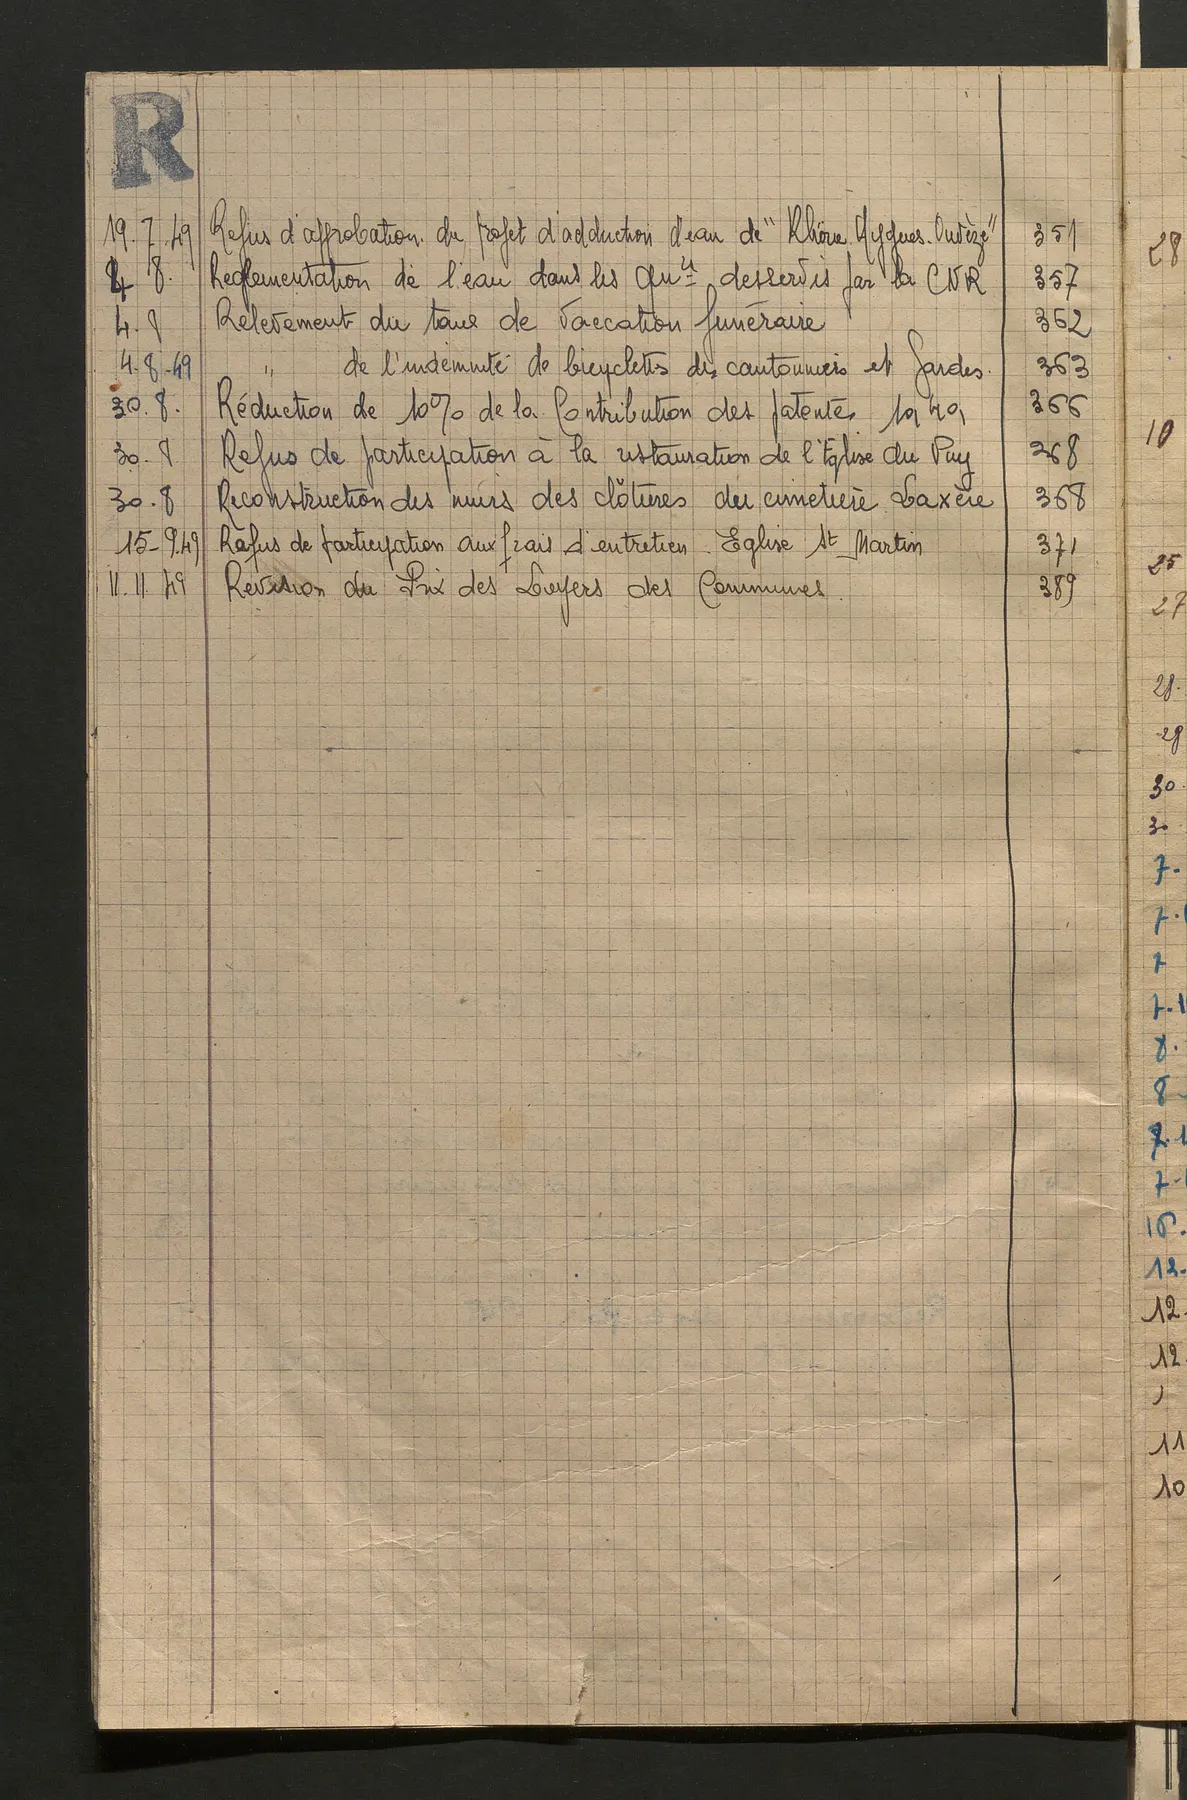 R
19.7.49 Refus d'approbation du projet d'adduction d'eau de "Rhône Aygues. Ouvèze" 351
4 8. Reglementation de l'eau dans les Qu^rs desservis par la CNR 357
4.8 Relèvement du taux de vaccation funéraire 362
4.8.49 " de l'indemnité de bicyclette des cantonniers et Gardes. 363
30.8. Réduction de 10% de la Contribution des patentes 1949 366
30.8 Refus de participation à la restauration de l'Eglise du Puy 368
30.8 Reconstruction des murs des clôtures du cimetière Laxère 368
15-9.49 Refus de participation aux frais d'entretien Eglise St Martin 371
11.11.49 Revision du Prix des Loyers des Communes. 389
28
10
25
27
28.
29
30.
30
7.
7.1
7
7.1
8.
8-
7.1
7-1
16.
12.
12.
12.
11
10